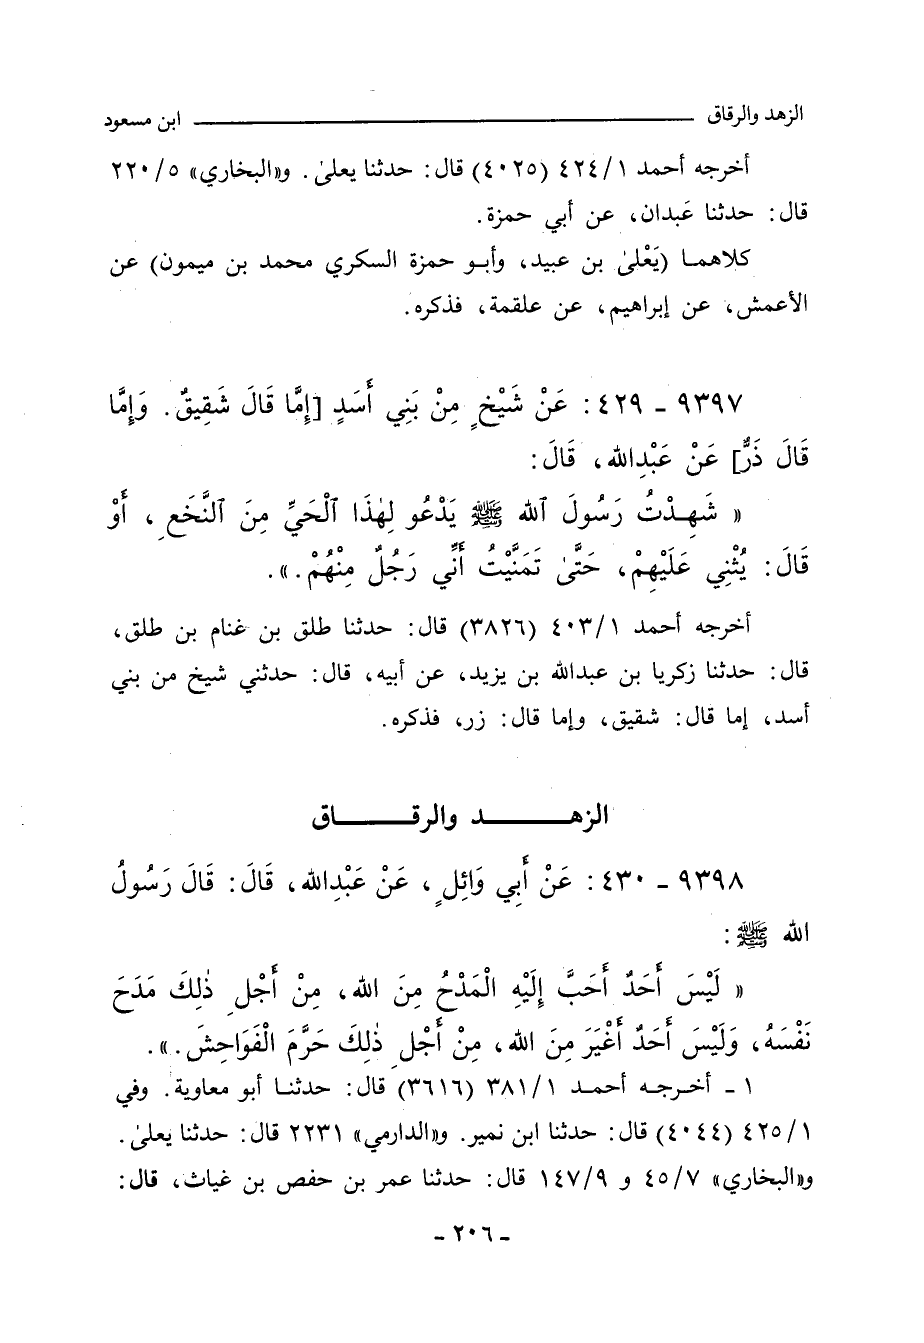 الزهد والرقاق ـــــــــــــــــــــــــــــــــــــــ ابن مسعود
أخرجه أحمد ٤٢٤/١ (٤٠٢٥) قال: حدثنا يعلىٰ. و«البخاري» ٢٢٠/٥
قال: حدثنا عَبدان، عن أبي حمزة.
كلاهمـا (يَعْلىٰ بن عبيد، وأبـو حمزة السكري محمد بن ميمون) عن
الأعمش، عن إبراهيم، عن علقمة، فذكره.
٩٣٩٧ ـ ٤٢٩: عَنْ شَيْخٍ مِنْ بَنِي أَسَدٍ [إِمَّا قَالَ شَقِيقٌ. وَإِمَّا
قَالَ ذَرٌّ] عَنْ عَبْدِالله، قَالَ:
« شَهِـدْتُ رَسُولَ ٱلله ﷺ يَدْعُو لِهٰذَا ٱلْحَيِّ مِنَ ٱلنَّخَعِ، أَوْ
قَالَ: يُثْنِي عَلَيْهِمْ، حَتَّىٰ تَمَنَّيْتُ أَنِّي رَجُلٌ مِنْهُمْ.».
أخرجه أحمد ٤٠٣/١ (٣٨٢٦) قال: حدثنا طلق بن غنام بن طلق،
قال: حدثنا زكريا بن عبدالله بن يزيد، عن أبيه، قال: حدثني شيخ من بني
أسد، إما قال: شقيق، وإما قال: زر، فذكره.
الزهــــــــد والرقــــــــاق
٩٣٩٨ ـ ٤٣٠: عَنْ أَبِي وَائِلٍ، عَنْ عَبْدِالله، قَالَ: قَالَ رَسُولُ
الله ﷺ:
« لَيْسَ أَحَدٌ أَحَبَّ إِلَيْهِ الْمَدْحُ مِنَ الله، مِنْ أَجْلِ ذٰلِكَ مَدَحَ
نَفْسَهُ، وَلَيْسَ أَحَدٌ أَغْيَرَ مِنَ الله، مِنْ أَجْلِ ذٰلِكَ حَرَّمَ الْفَوَاحِشَ.».
١ ـ أخـرجـه أحمـد ٣٨١/١ (٣٦١٦) قال: حدثنـا أبو معاوية. وفي
٤٢٥/١ (٤٠٤٤) قال: حدثنا ابن نمير. و«الدارمي» ٢٢٣١ قال: حدثنا يعلىٰ.
و«البخاري» ٤٥/٧ و ١٤٧/٩ قال: حدثنا عمر بن حفص بن غياث، قال:
ـ ٢٠٦ ـ